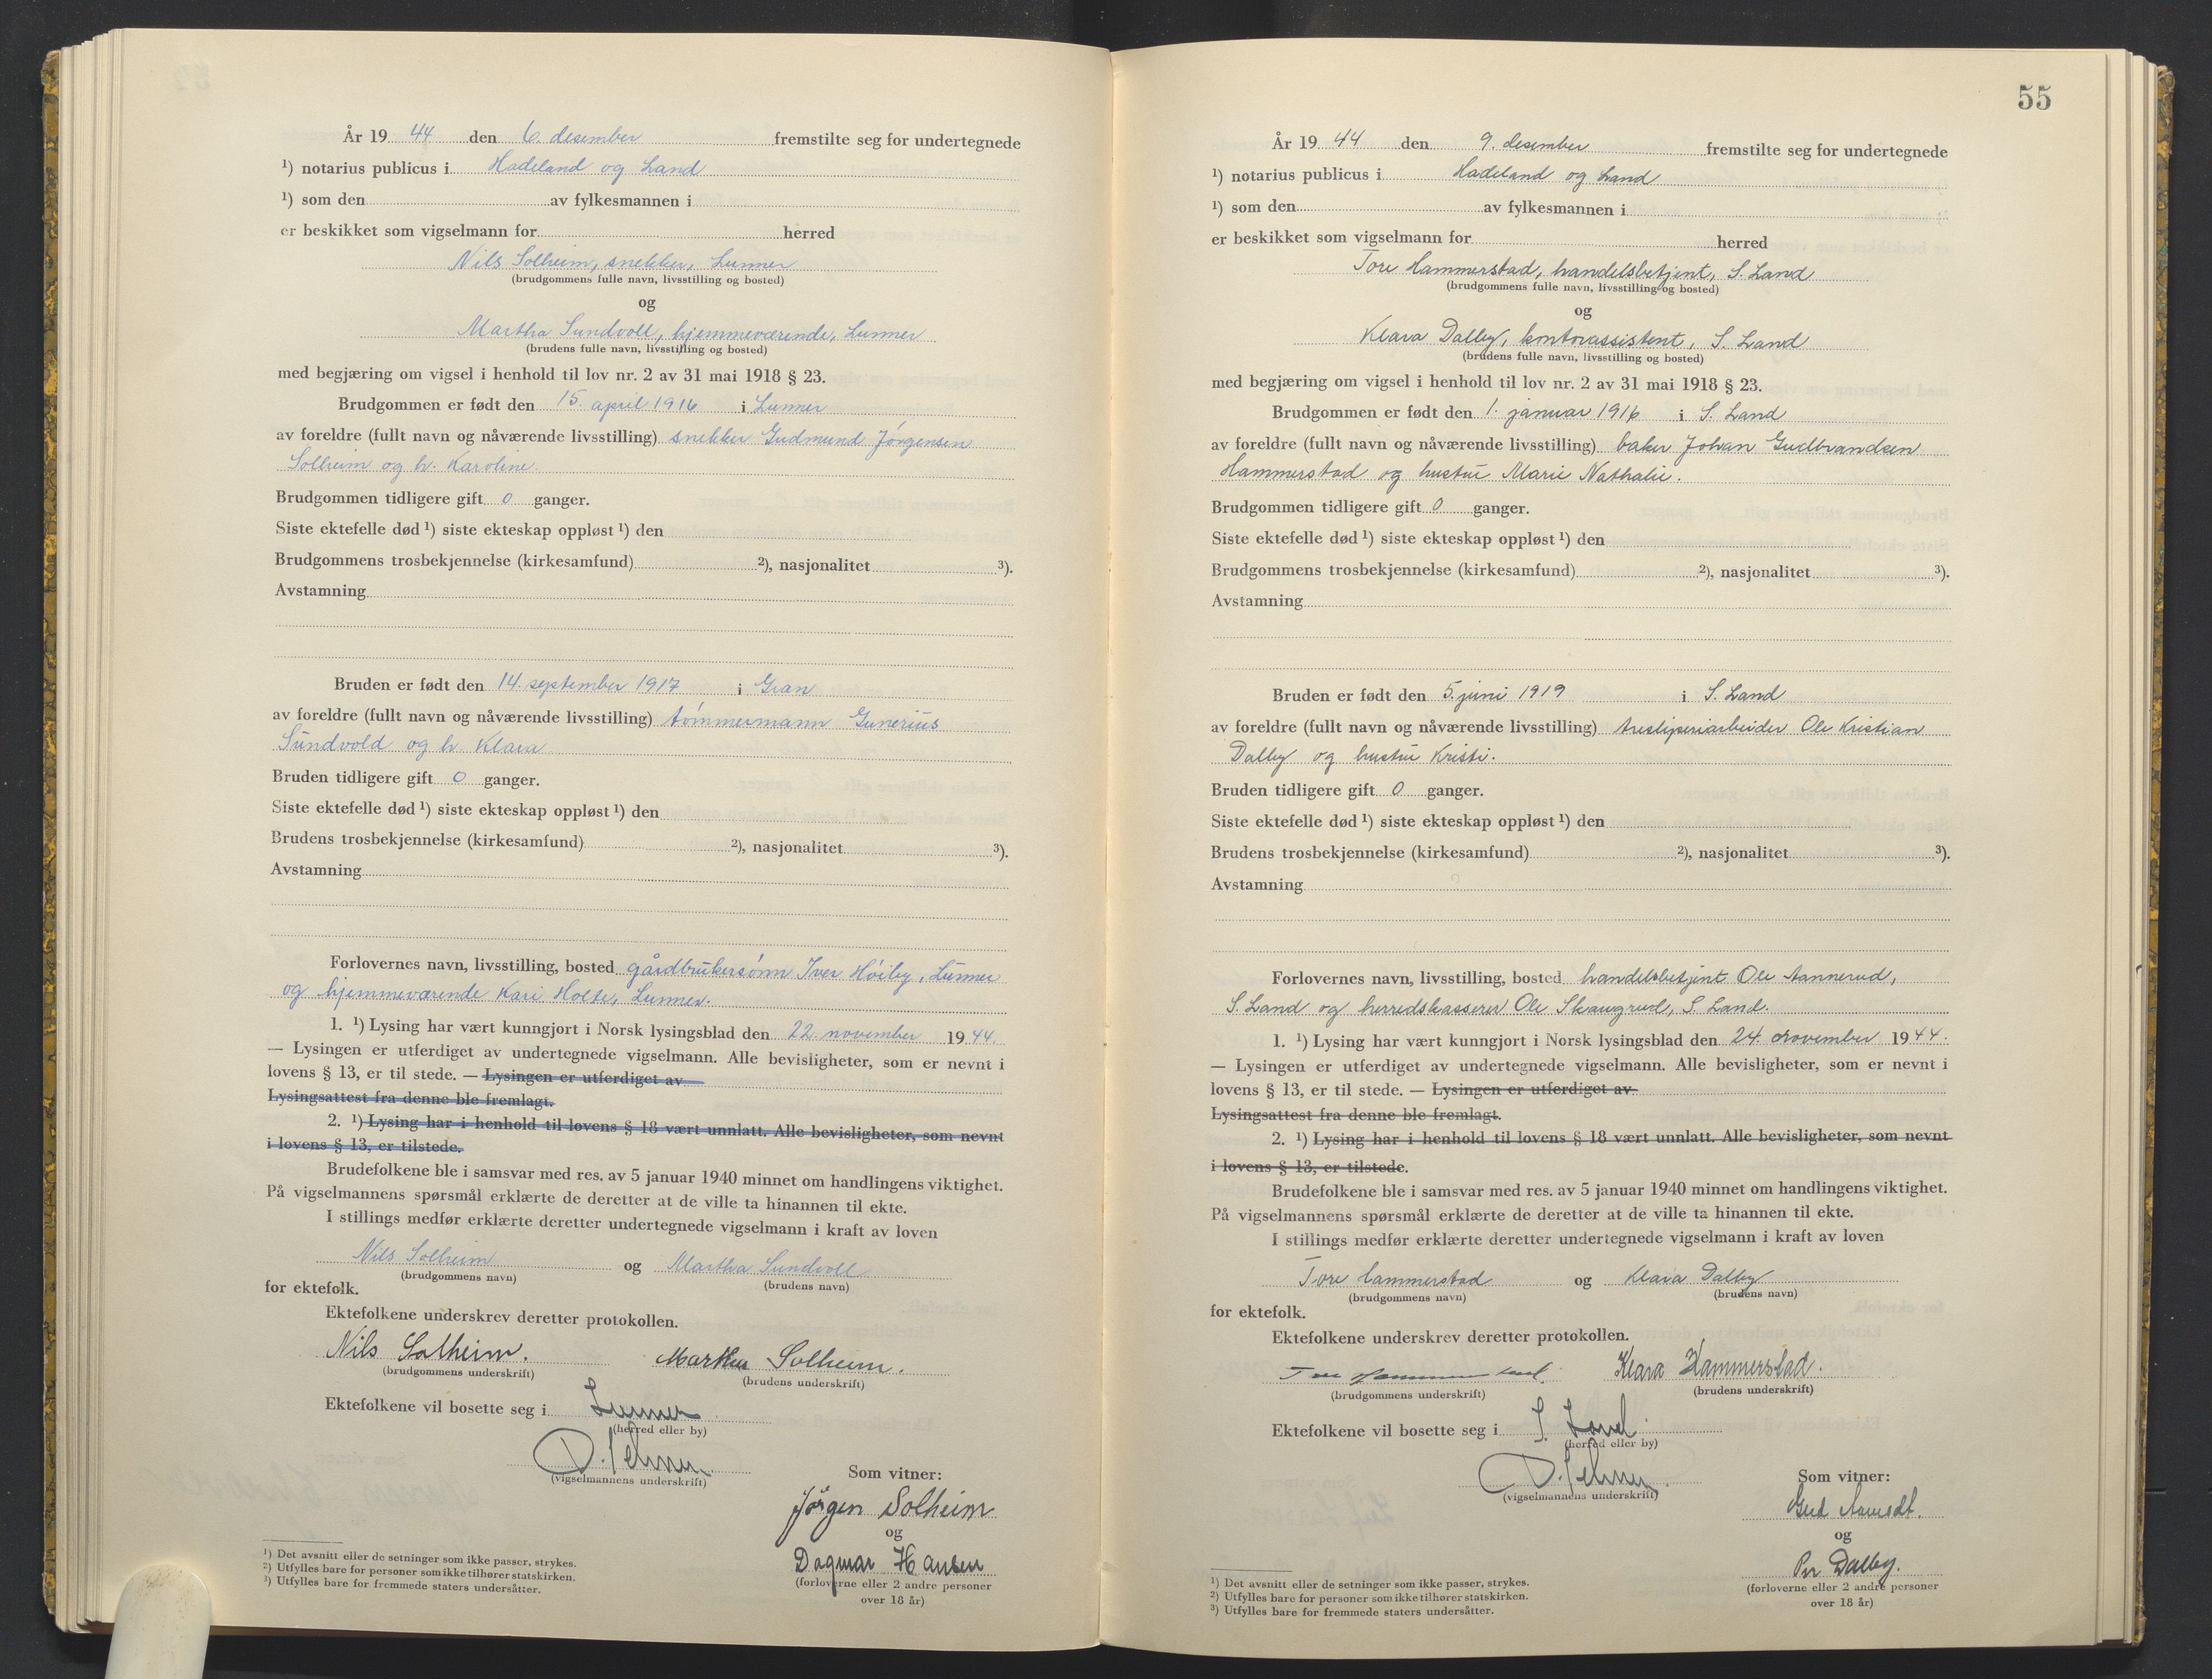 År 19 44 den 6. desember fremstilte seg for undertegnede
¹) notarius publicus i Hadeland og Land
¹) som den av fylkesmannen i
er beskikket som vigselmann for herred
Nils Solheim, snekker, Lunner
(brudgommens fulle navn, livsstilling og bosted)
og
Martha Sundvoll, hjemmeværende, Lunner
(brudens fulle navn, livsstilling og bosted)
med begjæring om vigsel i henhold til lov nr. 2 av 31 mai 1918 § 23.
Brudgommen er født den 15. april 1916 i Lunner
av foreldre (fullt navn og nåværende livsstilling) snekker Gudmund Jörgensen
Solheim og h. Karoline.
Brudgommen tidligere gift 0 ganger.
Siste ektefelle død ¹) siste ekteskap oppløst ¹) den
Brudgommens trosbekjennelse (kirkesamfund) ²), nasjonalitet ³).
Avstamning
Bruden er født den 14. september 1917 i Gran
av foreldre (fullt navn og nåværende livsstilling) tömmermann Gunerius
Sundvold og h. Klara
Bruden tidligere gift 0 ganger.
Siste ektefelle død ¹) siste ekteskap oppløst ¹) den
Brudens trosbekjennelse (kirkesamfund) ²), nasjonalitet ³).
Avstamning
Forlovernes navn, livsstilling, bosted gårdbrukersönn Iver Höiby, Lunner
og hjemmeværende Kari Holte, Lunner.
1. ¹) Lysing har vært kunngjort i Norsk lysingsblad den 22. november 1944.
— Lysingen er utferdiget av undertegnede vigselmann. Alle bevisligheter, som er nevnt i
lovens § 13, er til stede. — Lysingen er utferdiget av
Lysingsattest fra denne ble fremlagt.
2. ¹) Lysing har i henhold til lovens § 18 vært unnlatt. Alle bevisligheter, som nevnt
i lovens § 13, er tilstede.
Brudefolkene ble i samsvar med res. av 5 januar 1940 minnet om handlingens viktighet.
På vigselmannens spørsmål erklærte de deretter at de ville ta hinannen til ekte.
I stillings medfør erklærte deretter undertegnede vigselmann i kraft av loven
Nils Solheim og Martha Sundvoll
(brudgommens navn) (brudens navn)
for ektefolk.
Ektefolkene underskrev deretter protokollen.
Nils Solheim. Martha Solheim.
(brudgommens underskrift) (brudens underskrift)
Ektefolkene vil bosette seg i Lunner
(herred eller by)
(vigselmannens underskrift)
Som vitner:
Jörgen Solheim
og
Dagmar Hansen
(forloverne eller 2 andre personer
over 18 år)
¹) Det avsnitt eller de setninger som ikke passer, strykes.
²) Utfylles bare for personer som ikke tilhører statskirken.
³) Utfylles bare for fremmede staters undersåtter.
55
År 19 44 den 9. desember fremstilte seg for undertegnede
¹) notarius publicus i Hadeland og Land
¹) som den av fylkesmannen i
er beskikket som vigselmann for herred
Tore Hammerstad, handelsbetjent, S. Land
(brudgommens fulle navn, livsstilling og bosted)
og
Klara Dalby, kontorassistent, S. Land
(brudens fulle navn, livsstilling og bosted)
med begjæring om vigsel i henhold til lov nr. 2 av 31 mai 1918 § 23.
Brudgommen er født den 1. januar 1916 i S. Land
av foreldre (fullt navn og nåværende livsstilling) baker Johan Gudbrandsen
Hammerstad og hustru Marie Nathalie.
Brudgommen tidligere gift 0 ganger.
Siste ektefelle død ¹) siste ekteskap oppløst ¹) den
Brudgommens trosbekjennelse (kirkesamfund) ²), nasjonalitet ³).
Avstamning
Bruden er født den 5. juni 1919 i S. Land
av foreldre (fullt navn og nåværende livsstilling) tresliperiarbeider Ole Kristian
Dalby og hustru Kristi.
Bruden tidligere gift 0 ganger.
Siste ektefelle død ¹) siste ekteskap oppløst ¹) den
Brudens trosbekjennelse (kirkesamfund) ²), nasjonalitet ³).
Avstamning
Forlovernes navn, livsstilling, bosted handelsbetjent Ole Aannerud,
S. Land og herredskasserer Ole Skaugrud, S. Land.
1. ¹) Lysing har vært kunngjort i Norsk lysingsblad den 24. november 1944.
— Lysingen er utferdiget av undertegnede vigselmann. Alle bevisligheter, som er nevnt i
lovens § 13, er til stede. — Lysingen er utferdiget av
Lysingsattest fra denne ble fremlagt.
2. ¹) Lysing har i henhold til lovens § 18 vært unnlatt. Alle bevisligheter, som nevnt
i lovens § 13, er tilstede.
Brudefolkene ble i samsvar med res. av 5 januar 1940 minnet om handlingens viktighet.
På vigselmannens spørsmål erklærte de deretter at de ville ta hinannen til ekte.
I stillings medfør erklærte deretter undertegnede vigselmann i kraft av loven
Tore Hammerstad og Klara Dalby
(brudgommens navn) (brudens navn)
for ektefolk.
Ektefolkene underskrev deretter protokollen.
Tore Hammerstad. Klara Hammerstad.
(brudgommens underskrift) (brudens underskrift)
Ektefolkene vil bosette seg i S. Land
(herred eller by)
(vigselmannens underskrift)
Som vitner:
og
Per Dalby.
(forloverne eller 2 andre personer
over 18 år)
¹) Det avsnitt eller de setninger som ikke passer, strykes.
²) Utfylles bare for personer som ikke tilhører statskirken.
³) Utfylles bare for fremmede staters undersåtter.